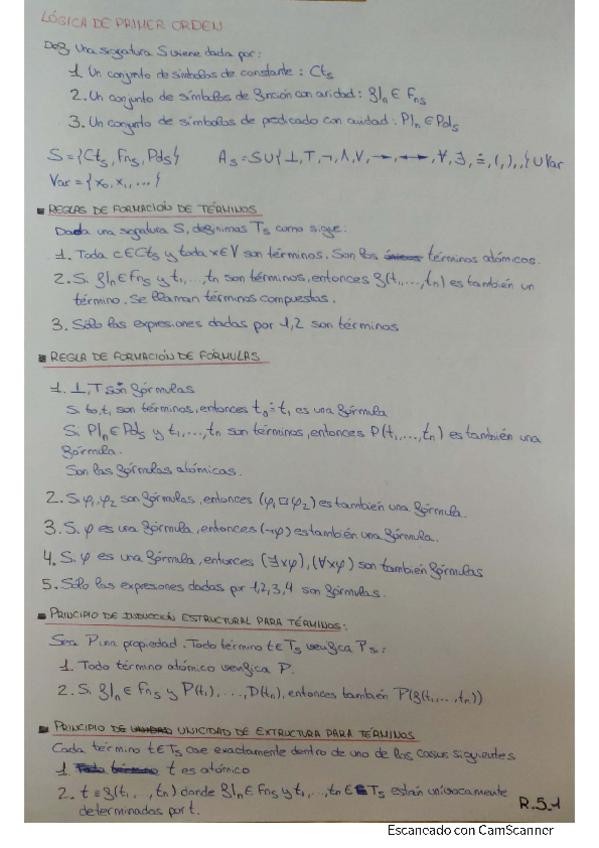 LÓGICA DE PRIMER ORDEN
Def Una signatura S viene dada por:
1. Un conjunto de símbolos de constante: Cts
2. Un conjunto de símbolos de función con aridad: f|n ∈ Fns
3. Un conjunto de símbolos de predicado con aridad: P|n ∈ Pds
S = {Cts, Fns, Pds} As = S∪{⊥,T,¬,∧,∨,→,↔,∀,∃,≐,(,),,}∪Var
Var = {x₀, x₁, ...}
REGLAS DE FORMACIÓN DE TÉRMINOS
Dada una signatura S, definimos Ts como sigue:
1. Toda c∈Cts y toda x∈V son términos. Son los términos atómicos.
2. Si f|n ∈ Fns y t₁,...,tn son términos, entonces f(t₁,...,tn) es también un
término. Se llaman términos compuestos.
3. Sólo las expresiones dadas por 1,2 son términos
REGLA DE FORMACIÓN DE FÓRMULAS
1. ⊥,T son fórmulas
Si t₀,t₁ son términos, entonces t₀ ≐ t₁ es una fórmula
Si P|n ∈ Pds y t₁,...,tn son términos, entonces P(t₁,...,tn) es también una
fórmula.
Son las fórmulas atómicas.
2. Si φ₁,φ₂ son fórmulas, entonces (φ₁ □ φ₂) es también una fórmula.
3. Si φ es una fórmula, entonces (¬φ) es también una fórmula.
4. Si φ es una fórmula, entonces (∃xφ),(∀xφ) son también fórmulas
5. Sólo las expresiones dadas por 1,2,3,4 son fórmulas.
PRINCIPIO DE INDUCCIÓN ESTRUCTURAL PARA TÉRMINOS:
Sea P una propiedad. Todo término t∈Ts verifica P si:
1. Todo término atómico verifica P.
2. Si f|n ∈ Fns y P(t₁),...,P(tn), entonces también P(f(t₁,...,tn))
PRINCIPIO DE UNICIDAD DE EXTRUCTURA PARA TÉRMINOS
Cada término t∈Ts cae exactamente dentro de uno de los casos siguientes
1. t es atómico
2. t = f(t₁,..,tn) donde f|n ∈ Fns y t₁,..,tn ∈ Ts están unívocamente
determinados por t.
R.5.1
Escaneado con CamScanner